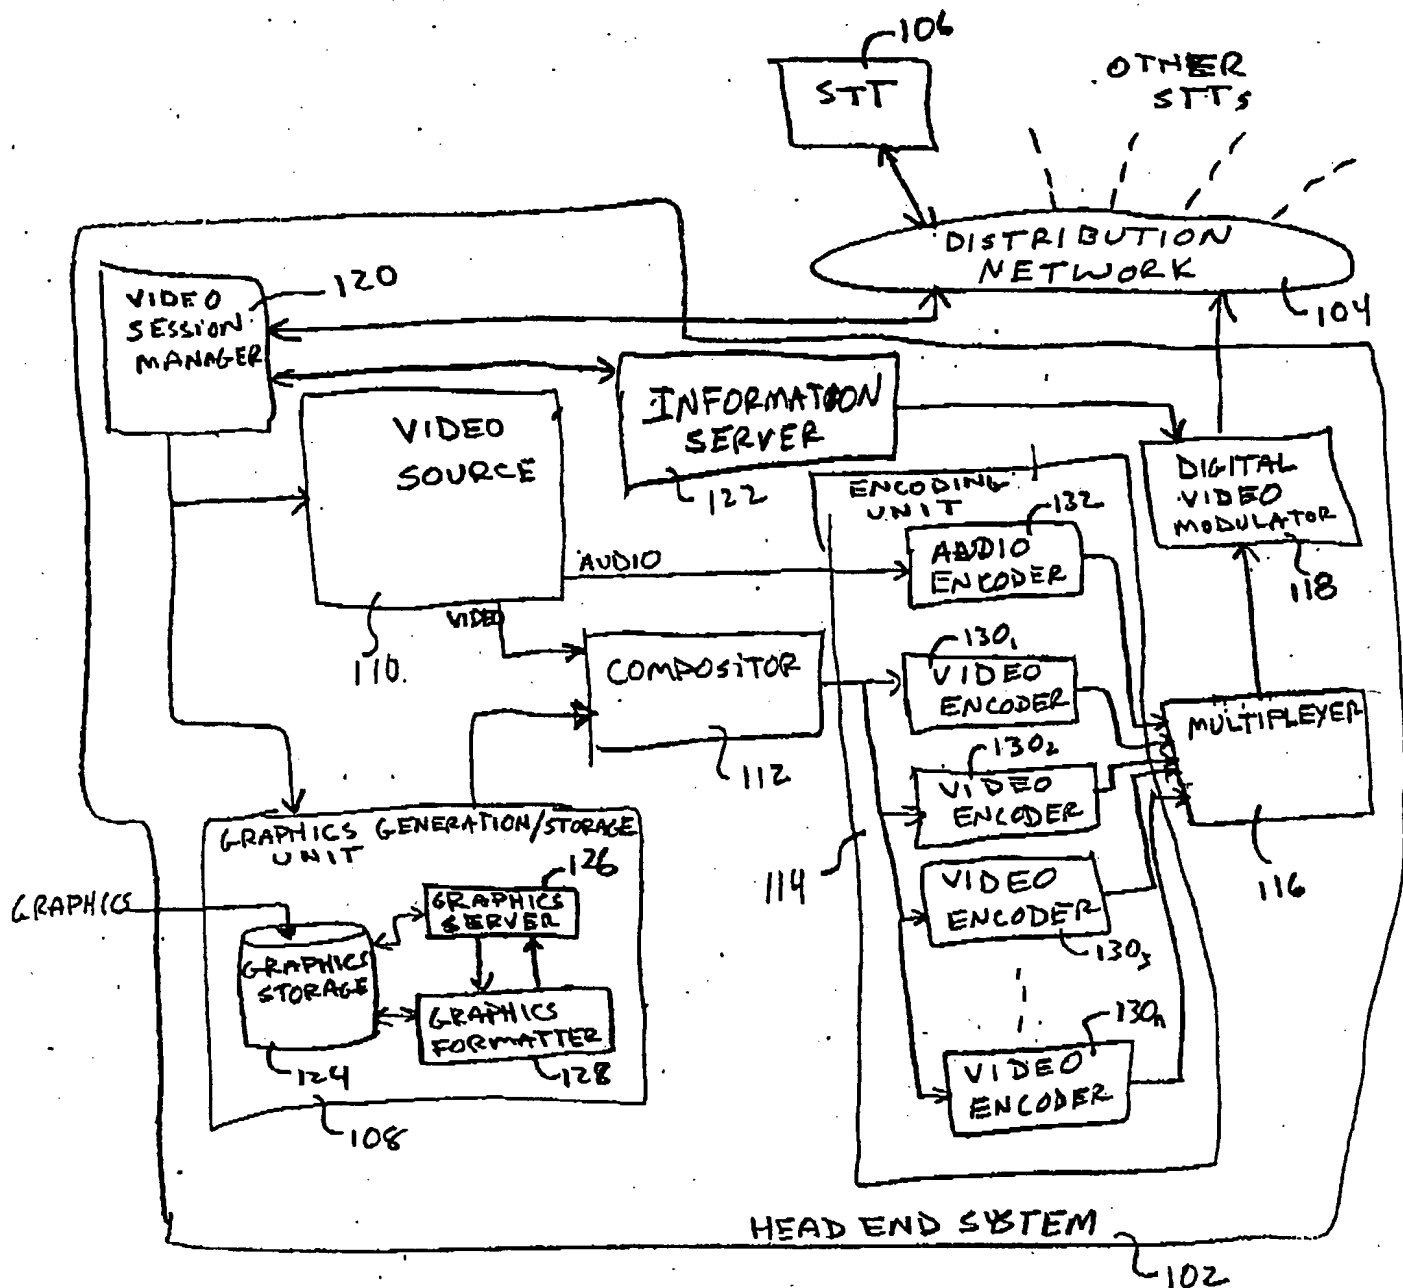 106
STT
OTHER
STTs
DISTRIBUTION
NETWORK
104
120
VIDEO
SESSION
MANAGER
INFORMATION
SERVER
122
VIDEO
SOURCE
110.
AUDIO
VIDEO
ENCODING
UNIT
132
AUDIO
ENCODER
DIGITAL
VIDEO
MODULATOR
118
COMPOSITOR
112
130₁
VIDEO
ENCODER
130₂
VIDEO
ENCODER
VIDEO
ENCODER
130₃
130ₙ
VIDEO
ENCODER
114
MULTIPLEXER
116
GRAPHICS GENERATION/STORAGE
UNIT
GRAPHICS
126
GRAPHICS
SERVER
GRAPHICS
STORAGE
124
GRAPHICS
FORMATTER
128
108
HEAD END SYSTEM
102